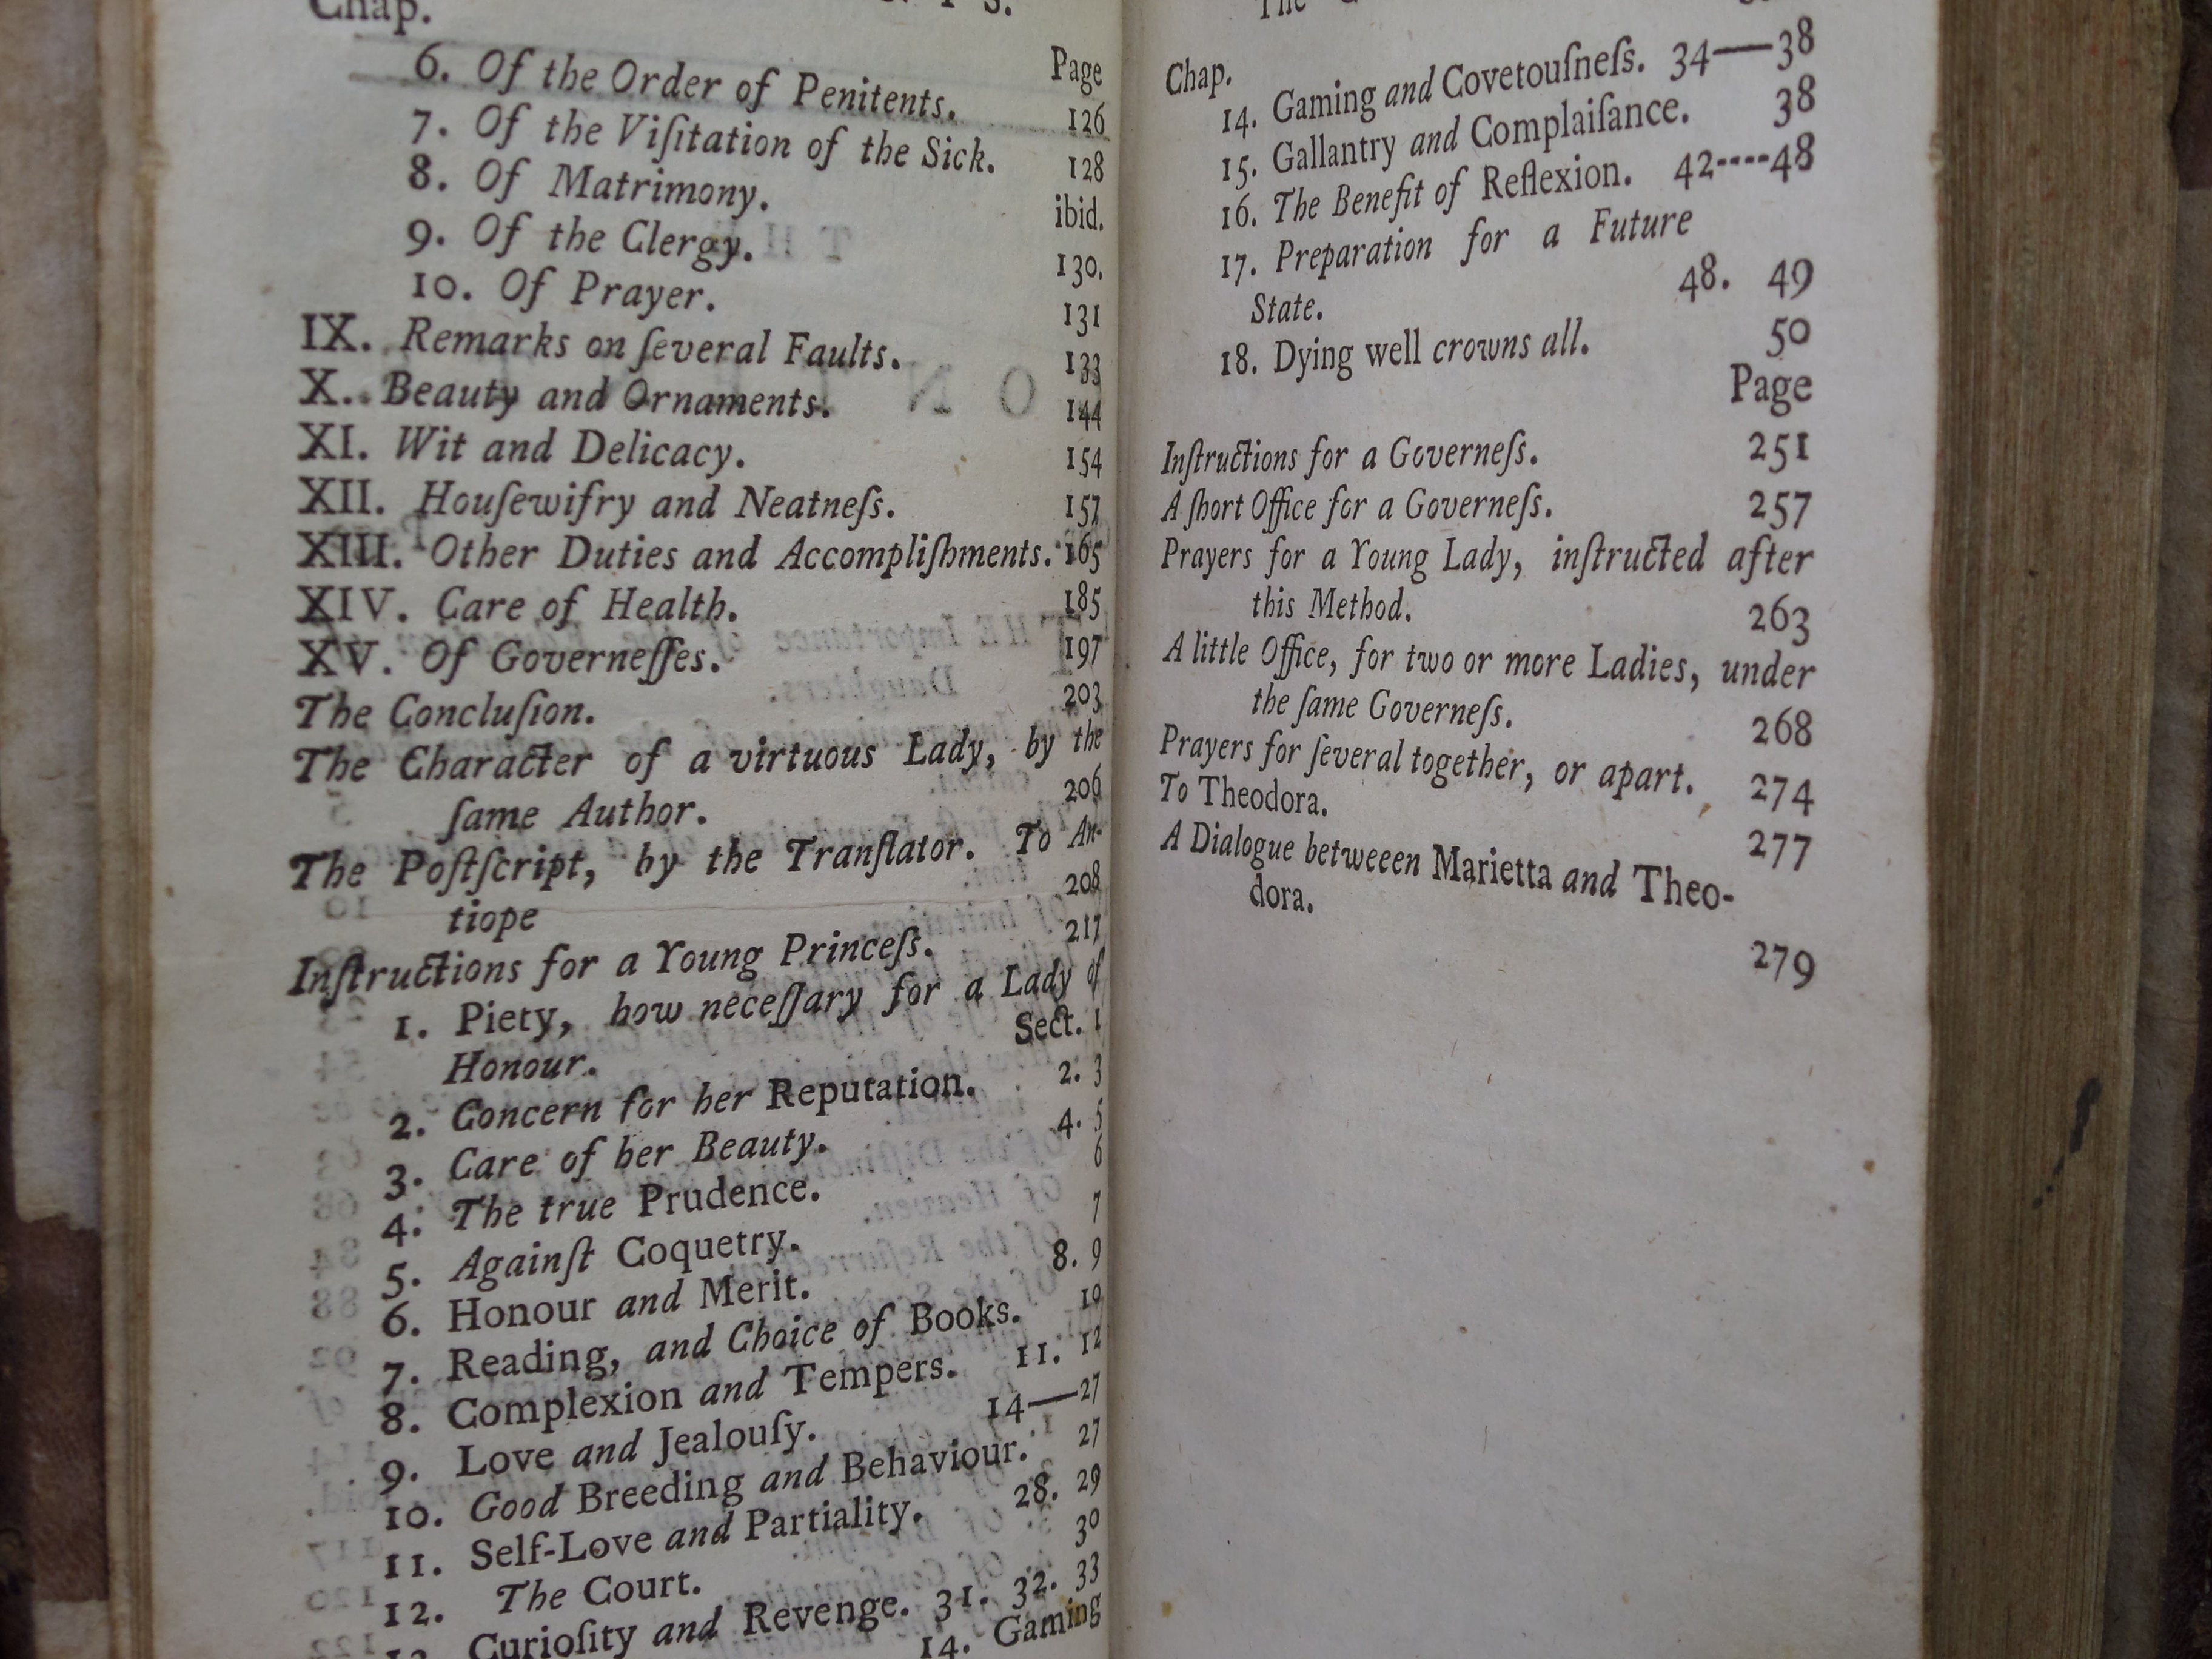 Chap.
Page
6. Of the Order of Penitents. 126
7. Of the Viſitation of the Sick. 128
8. Of Matrimony. ibid.
9. Of the Clergy. 130.
10. Of Prayer. 131
IX. Remarks on ſeveral Faults. 133
X. Beauty and Ornaments. 144
XI. Wit and Delicacy. 154
XII. Houſewifry and Neatneſs. 157
XIII. Other Duties and Accompliſhments. 165
XIV. Care of Health. 185
XV. Of Governeſſes. 197
The Concluſion. 203
The Character of a virtuous Lady, by the
ſame Author. 206
The Poſtſcript, by the Tranſlator. To An-
tiope 208
Inſtructions for a Young Princeſs. 217
1. Piety, how neceſſary for a Lady of
Honour. Sect. 1
2. Concern for her Reputation. 2. 3
3. Care of her Beauty. 4. 5
4. The true Prudence. 6
5. Againſt Coquetry. 7
6. Honour and Merit. 8. 9
7. Reading, and Choice of Books. 10
8. Complexion and Tempers. 11. 12
9. Love and Jealouſy. 14—27
10. Good Breeding and Behaviour. 27
11. Self-Love and Partiality. 28. 29
12. The Court. 30
13. Curioſity and Revenge. 31. 32. 33
14. Gaming
The
Chap.
14. Gaming and Covetouſneſs. 34—38
15. Gallantry and Complaiſance. 38
16. The Benefit of Reflexion. 42----48
17. Preparation for a Future
State. 48. 49
18. Dying well crowns all. 50
Page
Inſtructions for a Governeſs. 251
A ſhort Office for a Governeſs. 257
Prayers for a Young Lady, inſtructed after
this Method. 263
A little Office, for two or more Ladies, under
the ſame Governeſs. 268
Prayers for ſeveral together, or apart. 274
To Theodora. 277
A Dialogue betweeen Marietta and Theo-
dora. 279